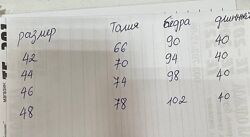 размер Талия бедра длинна
42 66 90 40
44 70 94 40
46 74 98 40
48 78 102 40